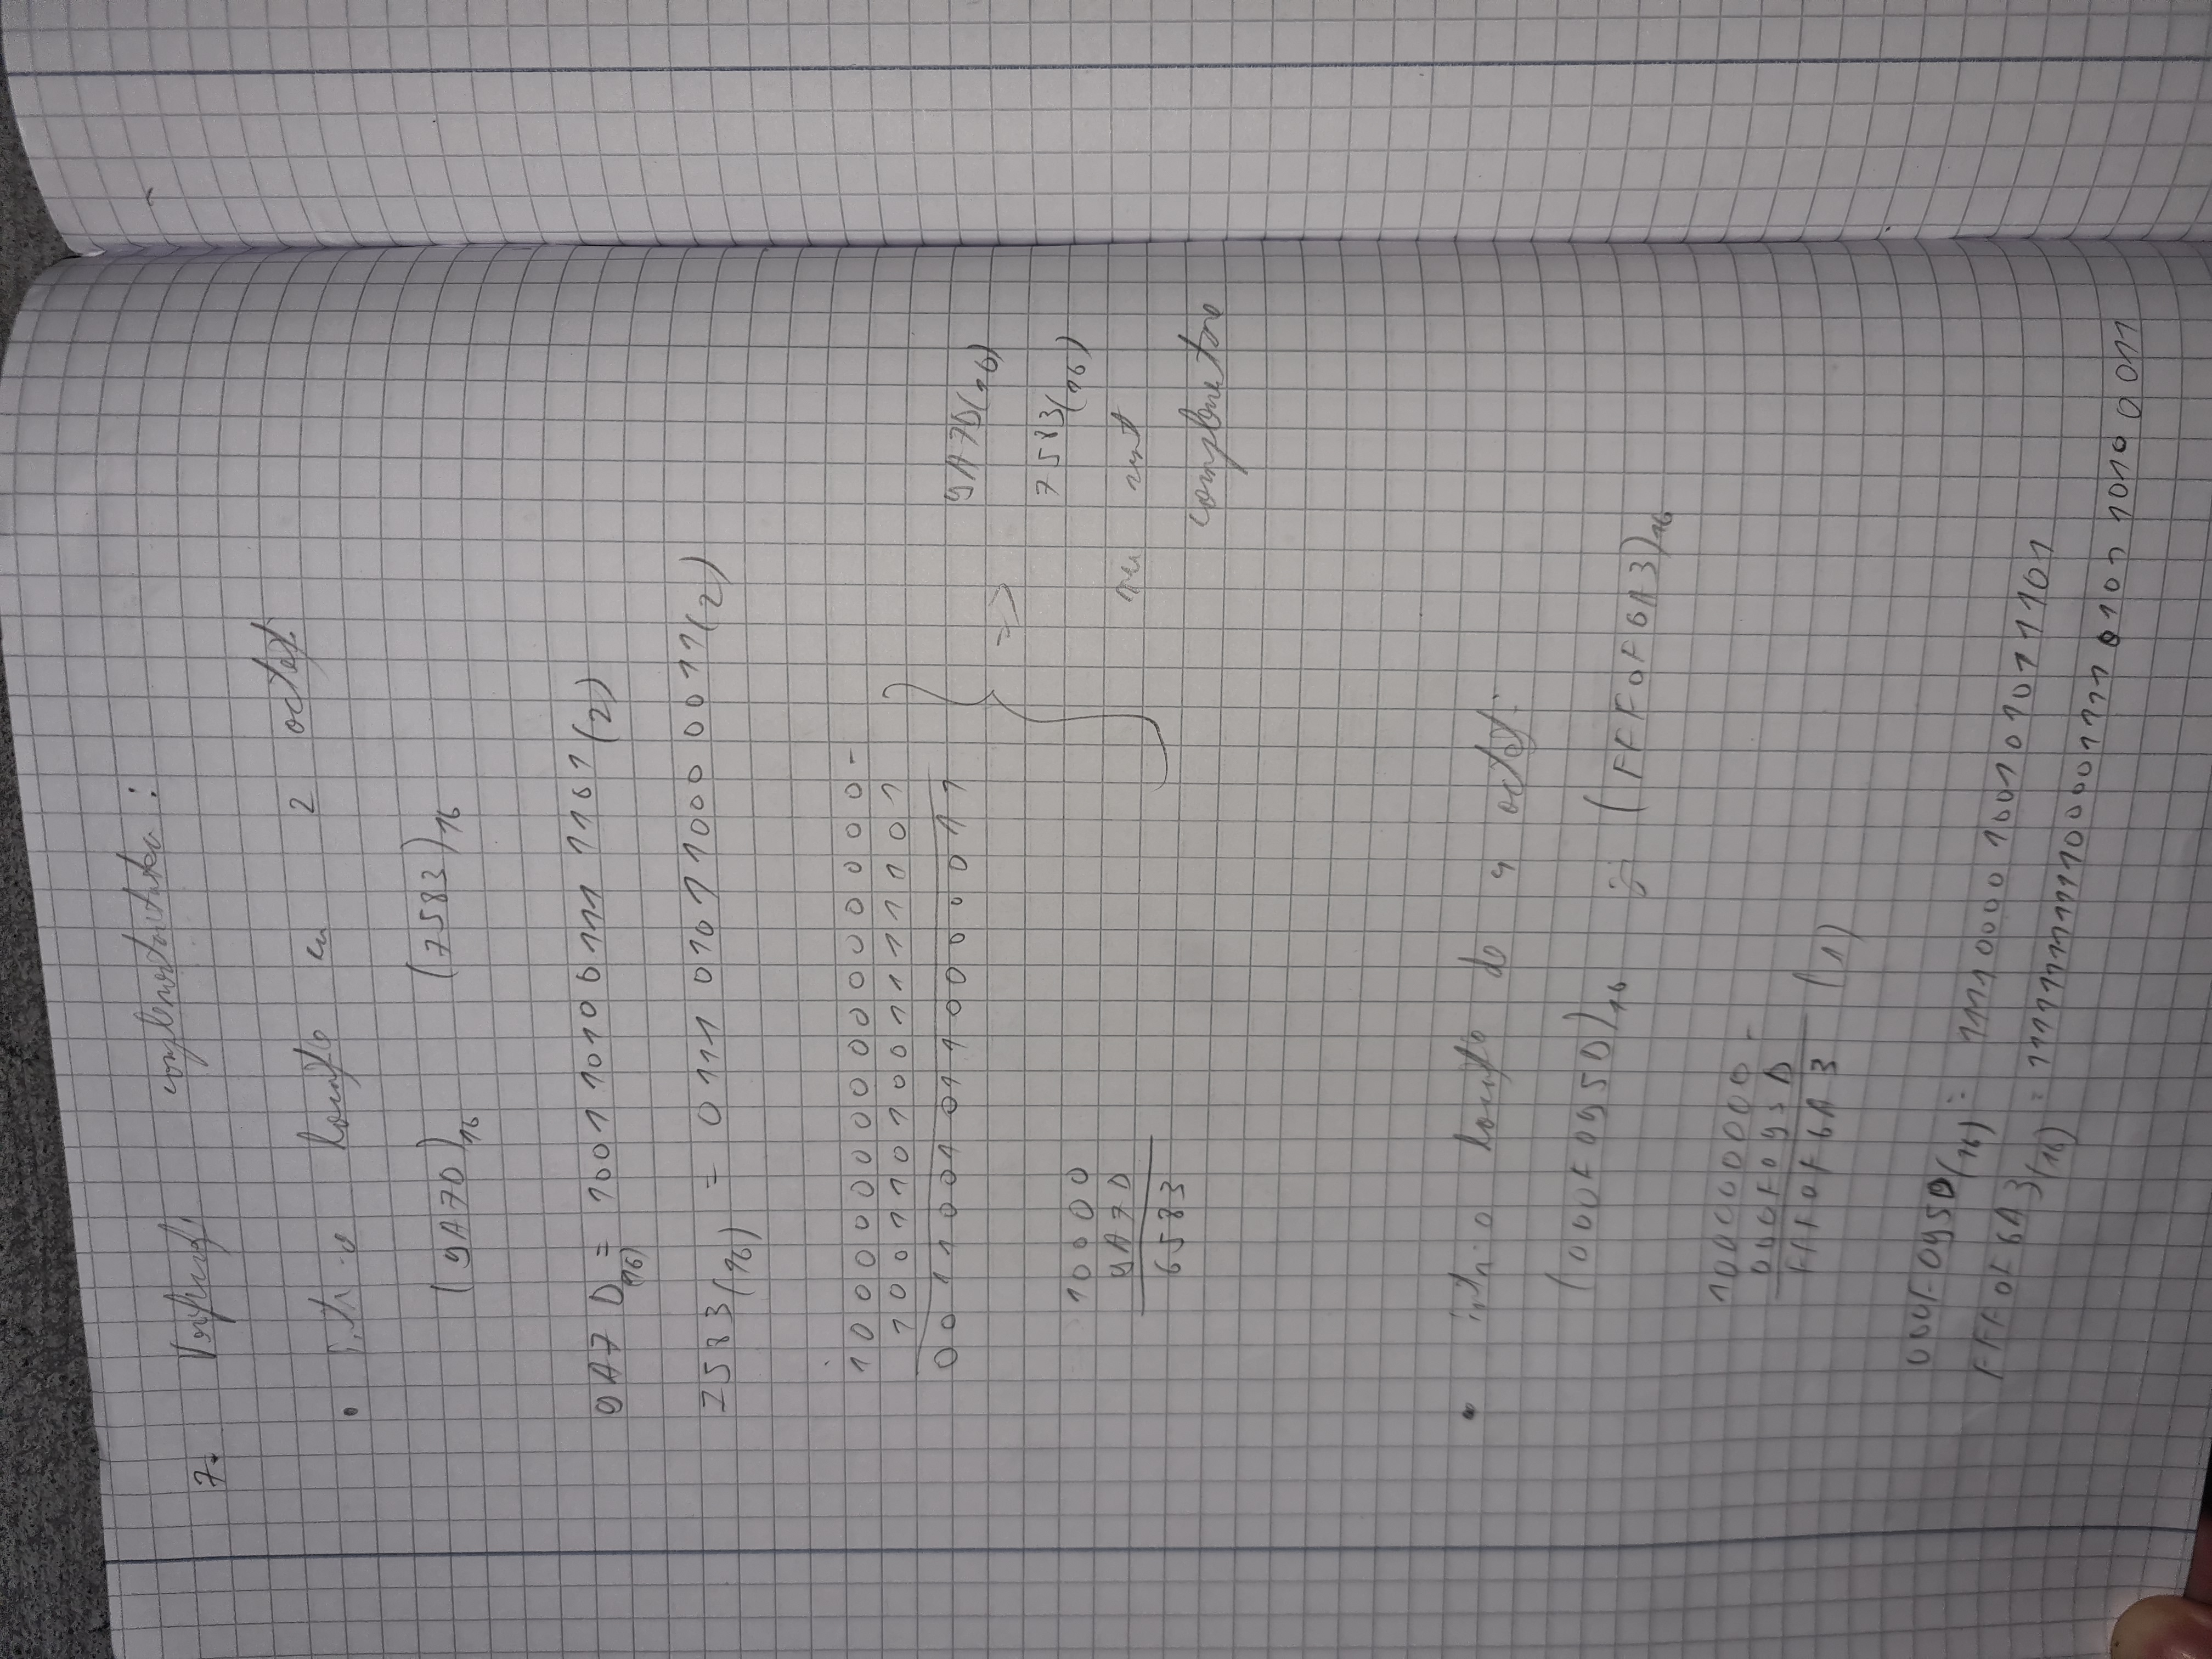 7. Verificați complementaritatea :
• într-o locație cu 2 octeți
(9A7D)16 (7583)16
9A7D(16) = 1001 1010 0111 1101(2)
7583(16) = 0111 0101 1000 0011(2)
10000000000000000 -
1001101001111101
00110010110000011
10000
9A7D
6583
=> 9A7D(16)
7583(16)
nu sunt
complementare
• într-o locație de 4 octeți:
(000F095D)16 și (FFF0F6A3)16
100000000 -
000F095D
FFF0F6A3 (1)
000F095D(16) = 11110000100101011101
FFF0F6A3(16) =